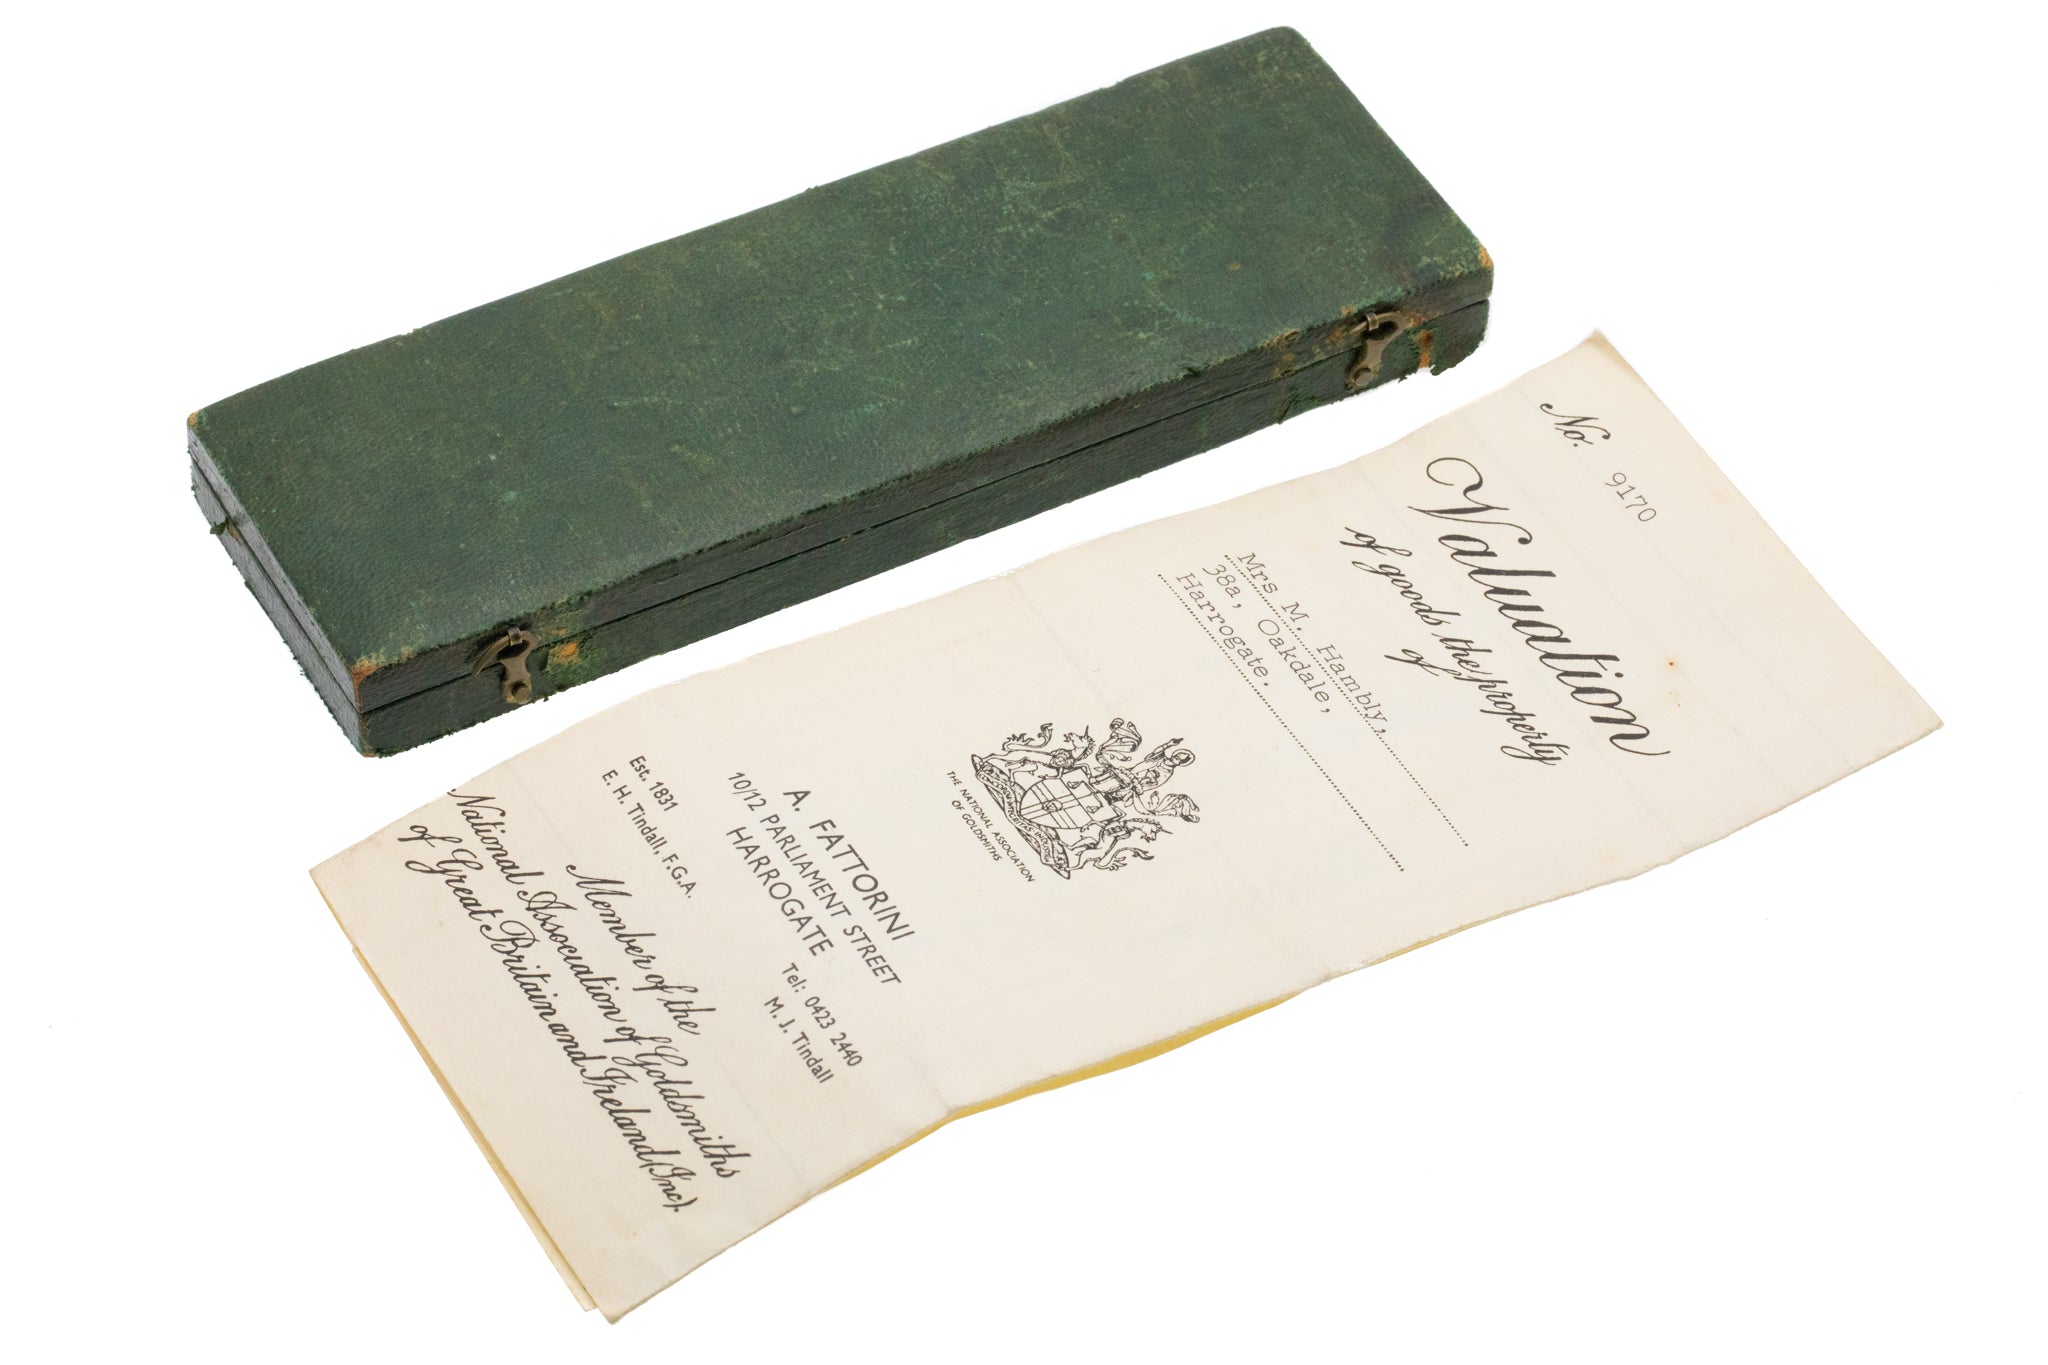 No. 9170
Valuation
of goods the property
of
Mrs M. Hambly,
38a, Oakdale,
Harrogate.
THE NATIONAL ASSOCIATION
OF GOLDSMITHS
A. FATTORINI
10/12 PARLIAMENT STREET
HARROGATE
Est. 1831 Tel: 0423 2440
E. H. Tindall, F.G.A. M. J. Tindall
Member of the
National Association of Goldsmiths
of Great Britain and Ireland (Inc).